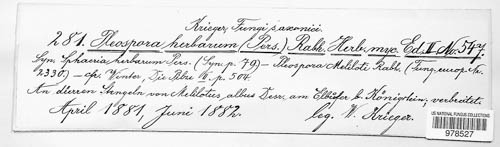 Krieger, Fungi saxonici.
281. Pleospora herbarum (Pers.) Rabh. Herb. myc. Ed. II No. 547.
Syn. Sphaeria herbarum Pers. (Syn. p. 79) — Pleospora Meliloti Rabh. (Fung. europ. No.
2330) — cfr. Winter, Die Pilze II. p. 504.
An dürren Stengeln von Melilotus albus Desr. am Elbufer b. Königstein, verbreitet.
April 1881, Juni 1882. leg. W. Krieger.
US NATIONAL FUNGUS COLLECTIONS
978527